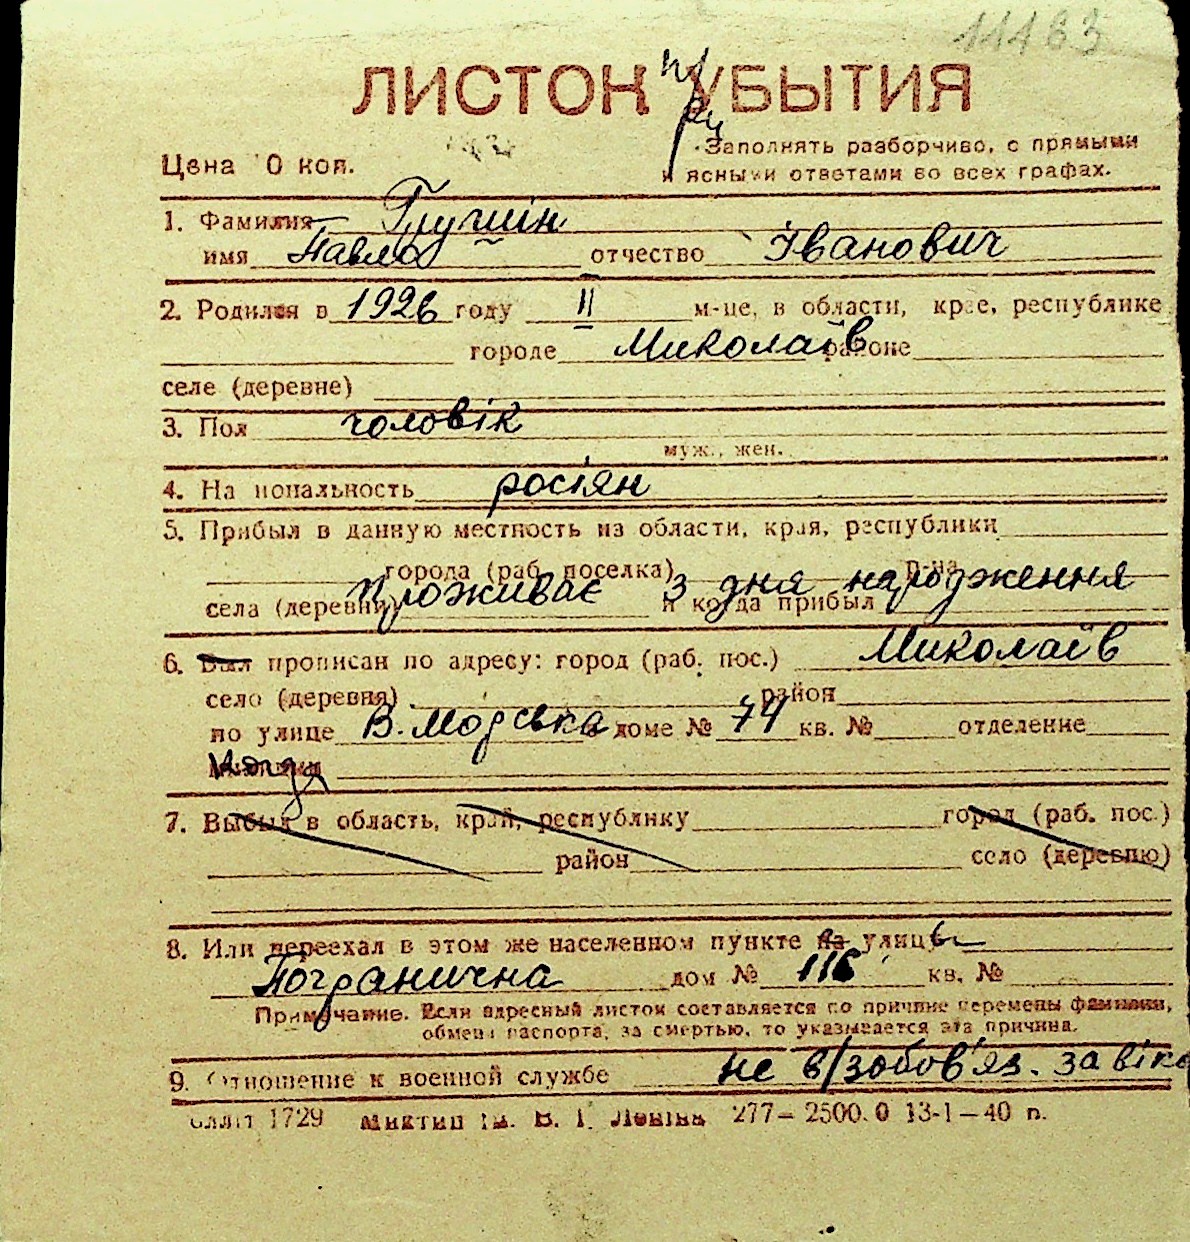 11463
ЛИСТОК УБЫТИЯ
пр
Цена 0 коп.
Заполнять разборчиво, с прямыми
и ясными ответами во всех графах.
1. Фамилия Грушін
имя Павло отчество Іванович
2. Родился в 1926 году II м-це, в области, крае, республике
городе Миколаїв районе
селе (деревне)
3. Пол чоловік
муж., жен.
4. Национальность росіян
5. Прибыл в данную местность из области, края, республики
города (раб. поселка) р-на
проживає з дня народження
села (деревни) и когда прибыл
6. Был прописан по адресу: город (раб. пос.) Миколаїв
село (деревня) район
по улице В. Морська в доме № 74 кв. № отделение
милиции
7. Выбыл в область, край, республику город (раб. пос.)
район село (деревню)
8. Или переехал в этом же населенном пункте на улицы
Погранична дом № 116 кв. №
Примечание. Если адресный листок составляется по причине перемены фамилии,
обмена паспорта, за смертью, то указывается эта причина.
9. Отношение к военной службе не в/зобов'яз. за віко
1729 277–2500.0 13-1–40 п.